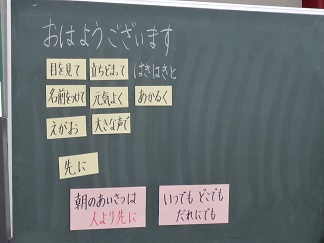 おはようございます
目を見て 立ちどまって はきはきと
名前をつけて 元気よく あかるく
えがお 大きな声で
先に
朝のあいさつは
人より先に
いつでも どこでも
だれにでも